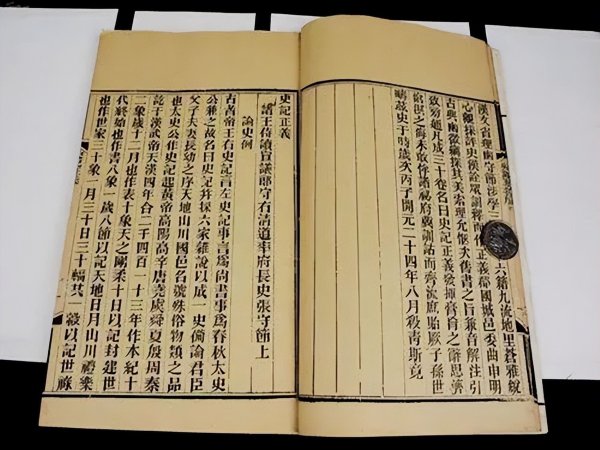 守節涉學三六籍九流地里蒼雅銳
心觀採評史漢詮衆訓釋而作正義郡國城邑委曲申明
古典幽微竊探其美索理允愜次舊書之旨兼音解注引
致旁通凡成三十卷名曰史記正義發揮膏肓之辭思濟
滄溟之海未敢侔諸祕府冀訓詁而齊流庶貽厥子孫世
疇茲史于時歲次丙子開元二十四年八月殺青斯竟
史記正義
諸王侍讀宣議郎守右清道率府長史張守節上
論史例
古者帝王右史記言左史記事言爲尚書事爲春秋太史
公兼之故名曰史記并採六家雜說以成一史備論君臣
父子夫妻長幼之序天地山川國邑名號殊俗物類之品
也太史公作史記起黃帝高陽高辛唐堯虞舜夏殷周秦
訖于漢武帝天漢四年合二千四百一十三年作本紀十
二象歲十二月也作表十象天之剛柔十日以記封建世
代終始也作書八象一歲八節以記天地日月山川禮樂
也作世家三十象一月三十日三十輻共一轂以記世祿